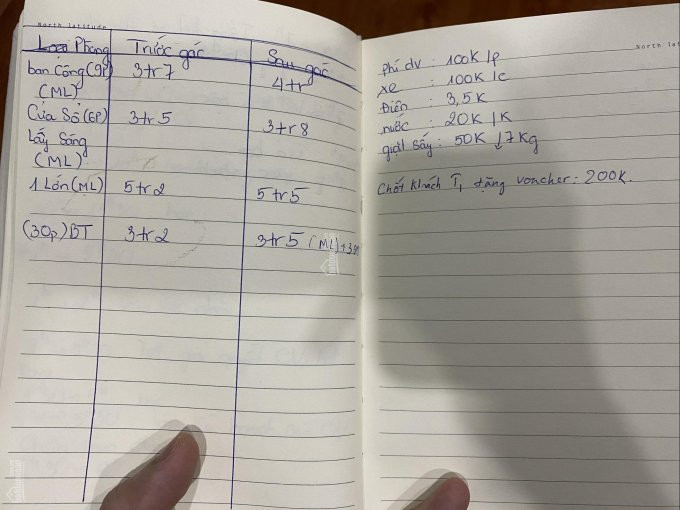 North latitude
Loại Phòng Trước gác Sau gác
ban công (9P) 3tr7 4tr
(ML)
Cửa Sổ (6P) 3tr5 3tr8
Lấy Sáng
(ML)
1 Lớn (ML) 5tr2 5tr5
(30p) BT 3tr2 3tr5 (ML)
North lat
phí dv : 100K /p
xe : 100K /c
Điện : 3,5K
nước : 20K /K
giặt sấy : 50K ↓7Kg
chốt khách T, tặng voncher: 200K.